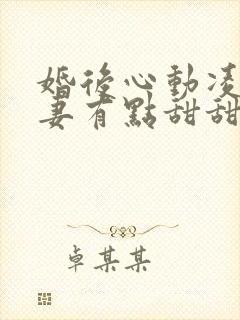 婚後心動凌
妻有點甜甜
卓某某